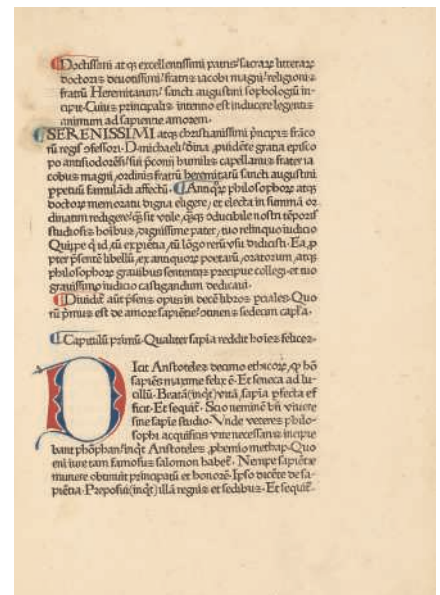 Doctissimi atqꝫ excellentissimi patris/ sacraꝝ litteraꝝ
doctoris deuotissimi/ fratris iacobi magni/ religionis
fratrū Heremitarum/ sancti augustini sophologiū in-
cipit· Cuius principalis intentio est inducere legentis
animum ad sapientie amorem·
SERENISSIMI atqꝫ christianissimi prīcipis frāco
rū regis ꝯfessori· D· michaeli/ diuina ꝓuidēte gratia episco
po antisiodorēsi/ sui p̄conij humilis capellanus frater ia
cobus magni/ ordinis fratrū heremitarū sancti augustini
ꝑpetuū famulādi affectū· Antiqꝝ philosophoꝝ atqꝫ
doctoꝝ memoratu digna eligere/ et electa in summā or
dinatum redigere/ ꝙ̄ sit vtile, ꝙ̄qꝫ ꝯducibile nostri tēporis
studiosis hoībus/ dignissime pater/ tuo relinquo iudicio
Quippe qͥ id/ tū expiētia/ tū lōgo rerū vsu didicisti· Ea ꝓ
pter p̄sentē libellū/ ex antiquoꝝ poetarū/ oratorum/ atqꝫ
philosophoꝝ grauibus sententijs precipue collegi· et tuo
grauissimo iudicio castigandum dedicaui·
Diuidit̄ aūt p̄sens opus in decē libros ꝑciales· Quo
rū p̄mus est de amore sapiētie/ ꝯtinens sedecim capl̄a·
Capitulū primū· Qualiter sapīa reddit hoīes felices·
Dicit Aristoteles decimo ethicoꝝ/ ꝙ hō
sapiēs maxime felix ē· Et seneca ad lu-
cillū· Beatā(inqͭ)vitā/ sapīa ꝑfecta ef
ficit· Et sequit̄· Scio neminē bn̄ viuere
sine sapīe studio· Vnde veteres philo-
sophi acquisitis vite necessarijs incipie
bant ph̄ophari/ inqͭ Aristoteles ꝓhemio methap· Quo
eni iure tam famosus salomon habet̄· Nempe sapiētie
munere obtinuit principatū et honorē· Ipso dicēte de sa-
piētia· Preposui(inqͭ)illā regnis et sedibus· Et sequit̄·